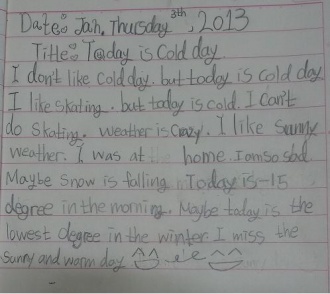 Date: Jan, Thursday 3th, 2013
Title: Today is cold day.
I don't like cold day. but today is cold day
I like skating. but today is cold. I can't
do skating. weather is crazy. I like sunny
weather. I was at home. I am so sad.
Maybe snow is falling. Today is -15
degree in the morning. Maybe today is the
lowest degree in the winter. I miss the
sunny and warm day. ^^